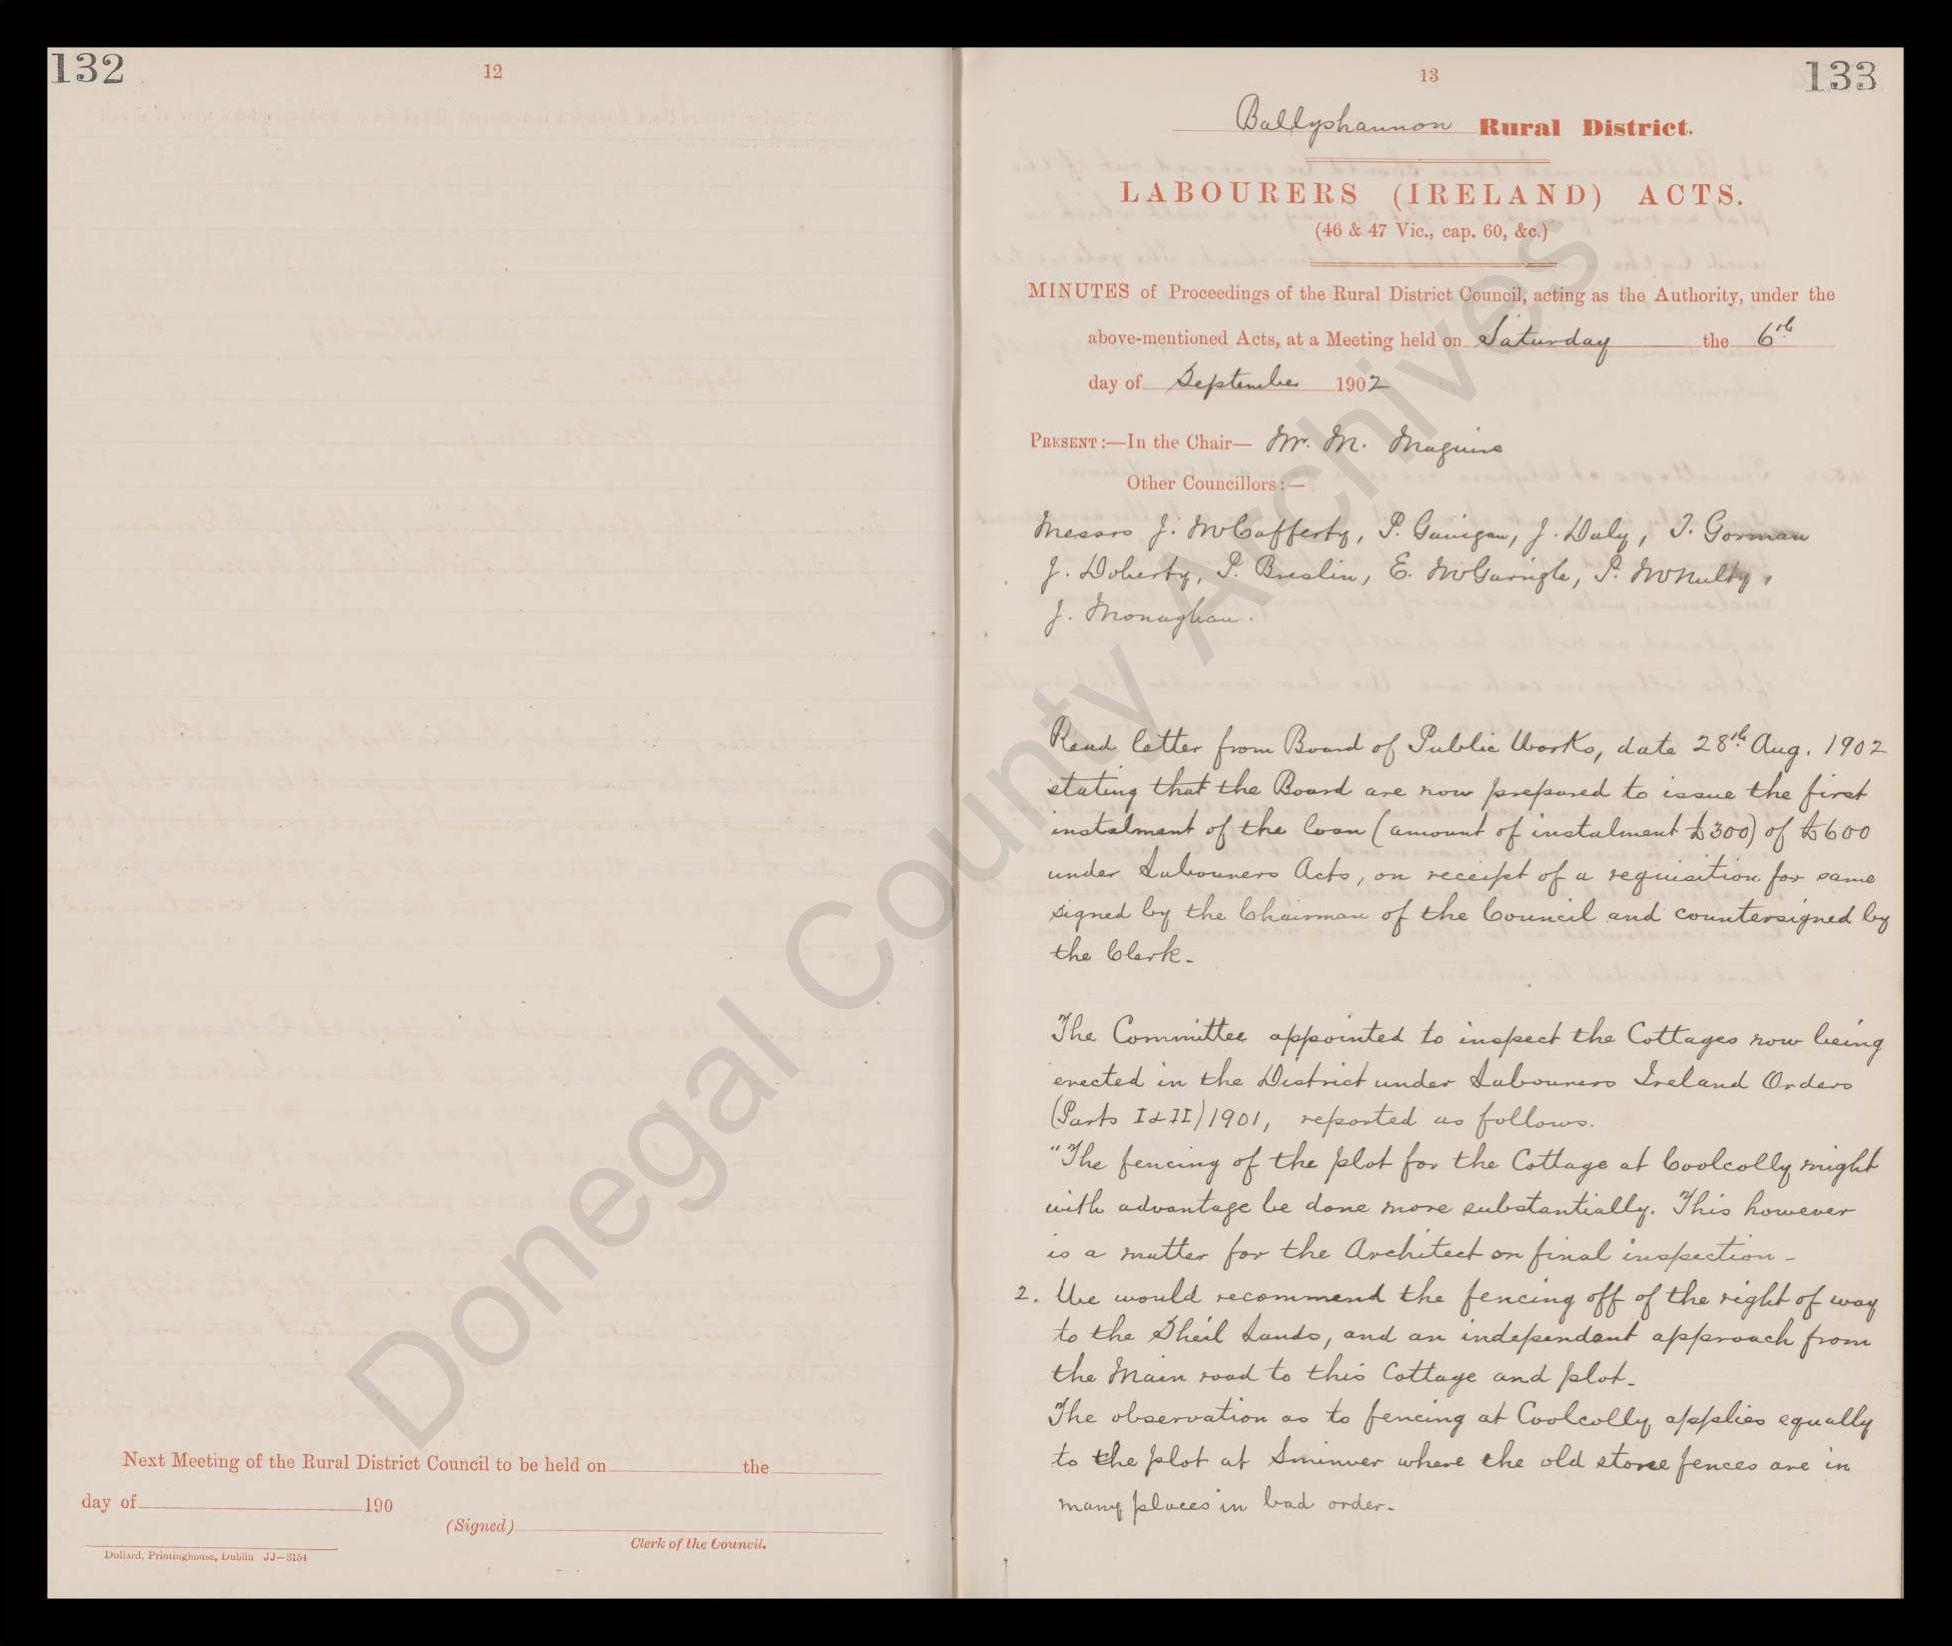 132
12
Next Meeting of the Rural District Council to be held on the
day of 190
(Signed)
Clerk of the Council.
Dollard, Printinghouse, Dublin JJ—3154
133
13
Ballyshannon Rural District.
LABOURERS (IRELAND) ACTS.
(46 & 47 Vic., cap. 60, &c.)
MINUTES of Proceedings of the Rural District Council, acting as the Authority, under the
above-mentioned Acts, at a Meeting held on Saturday the 6th
day of September 1902
PRESENT:—In the Chair— Mr. M. Maguire
Other Councillors:—
Messrs J. McCafferty, P. Gavigan, J. Daly, T. Gorman
J. Doherty, P. Breslin, E. McGarrigle, P. McNulty,
J. Monaghan.
Read letter from Board of Public Works, date 28th Aug. 1902
stating that the Board are now prepared to issue the first
instalment of the loan (amount of instalment £300) of £600
under Labourers Acts, on receipt of a requisition for same
signed by the Chairman of the Council and countersigned by
the Clerk.
The Committee appointed to inspect the Cottages now being
erected in the District under Labourers Ireland Orders
(Parts I & II) 1901, reported as follows.
"The fencing of the plot for the Cottage at Coolcolly might
with advantage be done more substantially. This however
is a matter for the Architect on final inspection -
2. We would recommend the fencing off of the right of way
to the Sheil Lands, and an independent approach from
the Main road to this Cottage and plot.
The observation as to fencing at Coolcolly applies equally
to the plot at Sminver where the old stone fences are in
many places in bad order.
Donegal County Archives